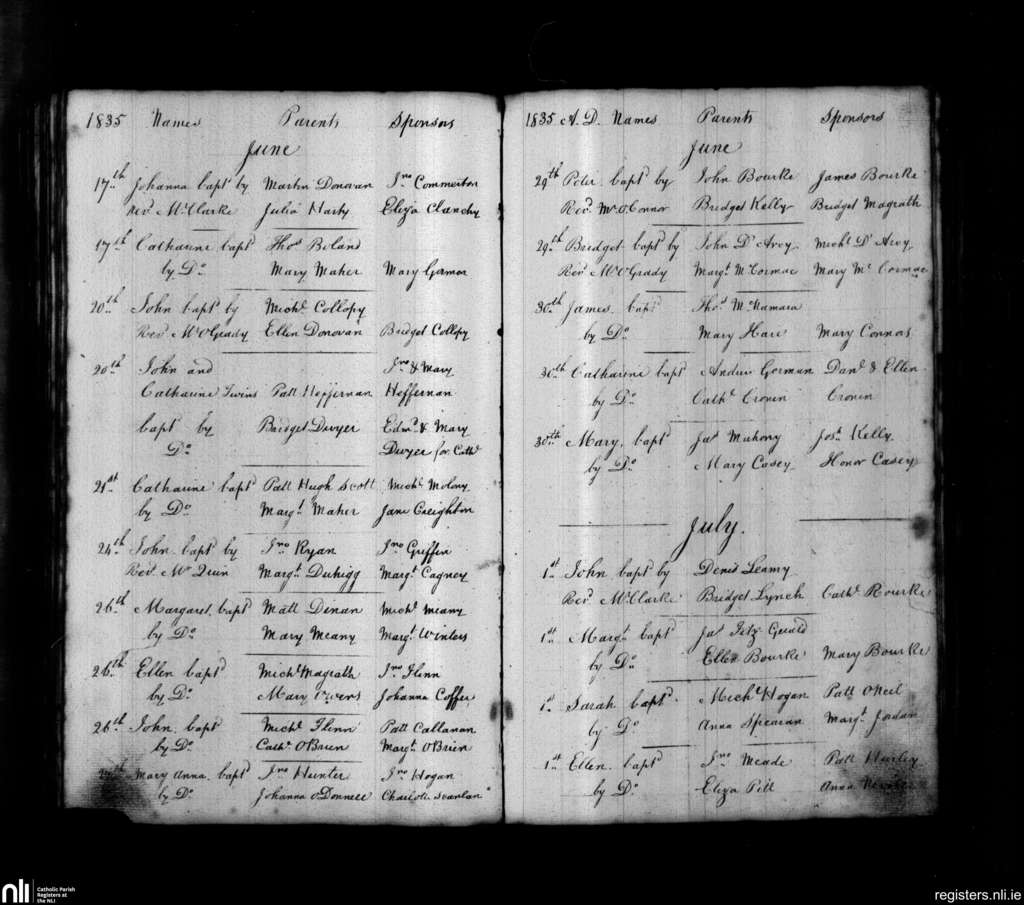 1835 Names Parents Sponsors
June
17th Johanna bapd by Martin Donovan Jno Commerton
Revd Mr Clarke Julia Harty Eliza Clanchy
17th Catharine bapd Thos Boland
by Do Mary Maher Mary Gorman
20th John bapd by Michl Collopy
Revd Mr OGrady Ellen Donovan Bridget Collopy
20th John and Jno & Mary
Catharine Twins Patt Heffernan Heffernan
bapd by Bridget Dwyer Edmd & Mary
Do Dwyer for Cathe
21st Catharine bapd Patt Hugh Scott Michl Molony
by Do Margt Maher Jane Creighton
24th John bapd by Jno Ryan Jno Griffin
Revd Mr Quin Margt Duhigg Margt Cagney
26th Margaret bapd Matt Dinan Michl Meany
by Do Mary Meany Margt Winters
26th Ellen bapd Michl Magrath Jno Flinn
by Do Mary Johanna
26th John bapd Michl Flinn Patt Callanan
by Do Cathe OBrien Margt OBrien
Mary Anna bapd Jno Hunter Jno Hogan
by Do Johanna ODonnell Charlotte Scanlan
1835 A.D. Names Parents Sponsors
June
29th Peter bapd by John Bourke James Bourke
Revd Mr OConnor Bridget Kelly Bridget Magrath
29th Bridget bapd by John D'Arcy Michl D'Arcy
Revd Mr OGrady Margt McCormac Mary McCormac
30th James bapd Thos McNamara
by Do Mary Hare Mary Connors
30th Catharine bapd Andrew Gorman Danl & Ellen
by Do Cathe Cronin Cronin
30th Mary bapd Jas Mahony Josh Kelly
by Do Mary Casey Honor Casey
July.
1st John bapd by Denis Leamy
Revd Mr Clarke Bridget Lynch Cathe Rourke
1st Margt bapd Jas Fitz Gerald
by Do Ellen Bourke Mary Bourke
1st Sarah bapd Michl Hogan Patt ONeil
by Do Anna Spearan Margt Jordan
1st Ellen bapd Jno Meade Patt Hurley
by Do Eliza Pitt Anna
nli
Catholic Parish
Registers at
the NLI
registers.nli.ie